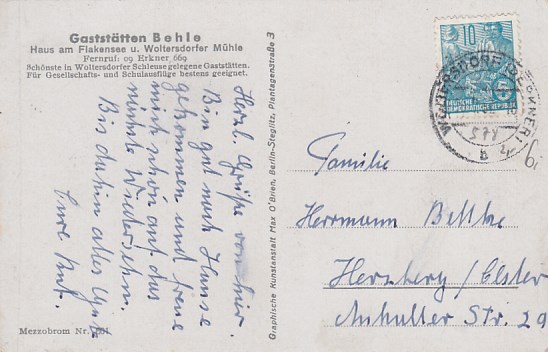 Gaststätten Behle
Haus am Flakensee u. Woltersdorfer Mühle
Fernruf: 09 Erkner 669
Schönste in Woltersdorfer Schleuse gelegene Gaststätten.
Für Gesellschafts- und Schulausflüge bestens geeignet.
Herzl. Grüße von hier.
Bin gut nach Hause
gekommen und freue
mich schon auf das
nächste Wiedersehn.
Bis dahin alles Gute
Eure
Merzobrom Nr.
Graphische Kunstanstalt Max O'Brien, Berlin-Steglitz, Plantagenstraße 3
10
DEUTSCHE
DEMOKRATISCHE REPUBLIK
WOLTERSDORF
ERKNER
b
Familie
Herrmann
Herzberg/Elster
Anhalter Str. 29